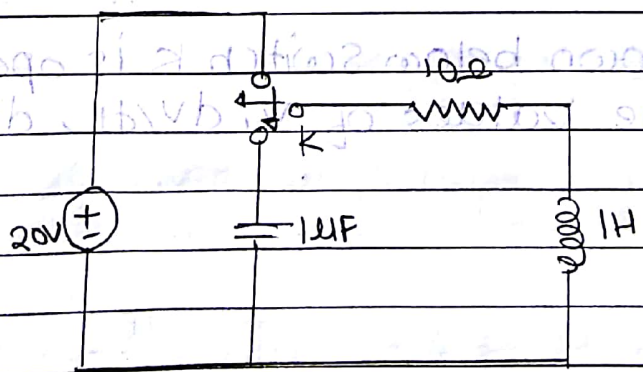 10Ω
K
20V
+
-
1µF
1H